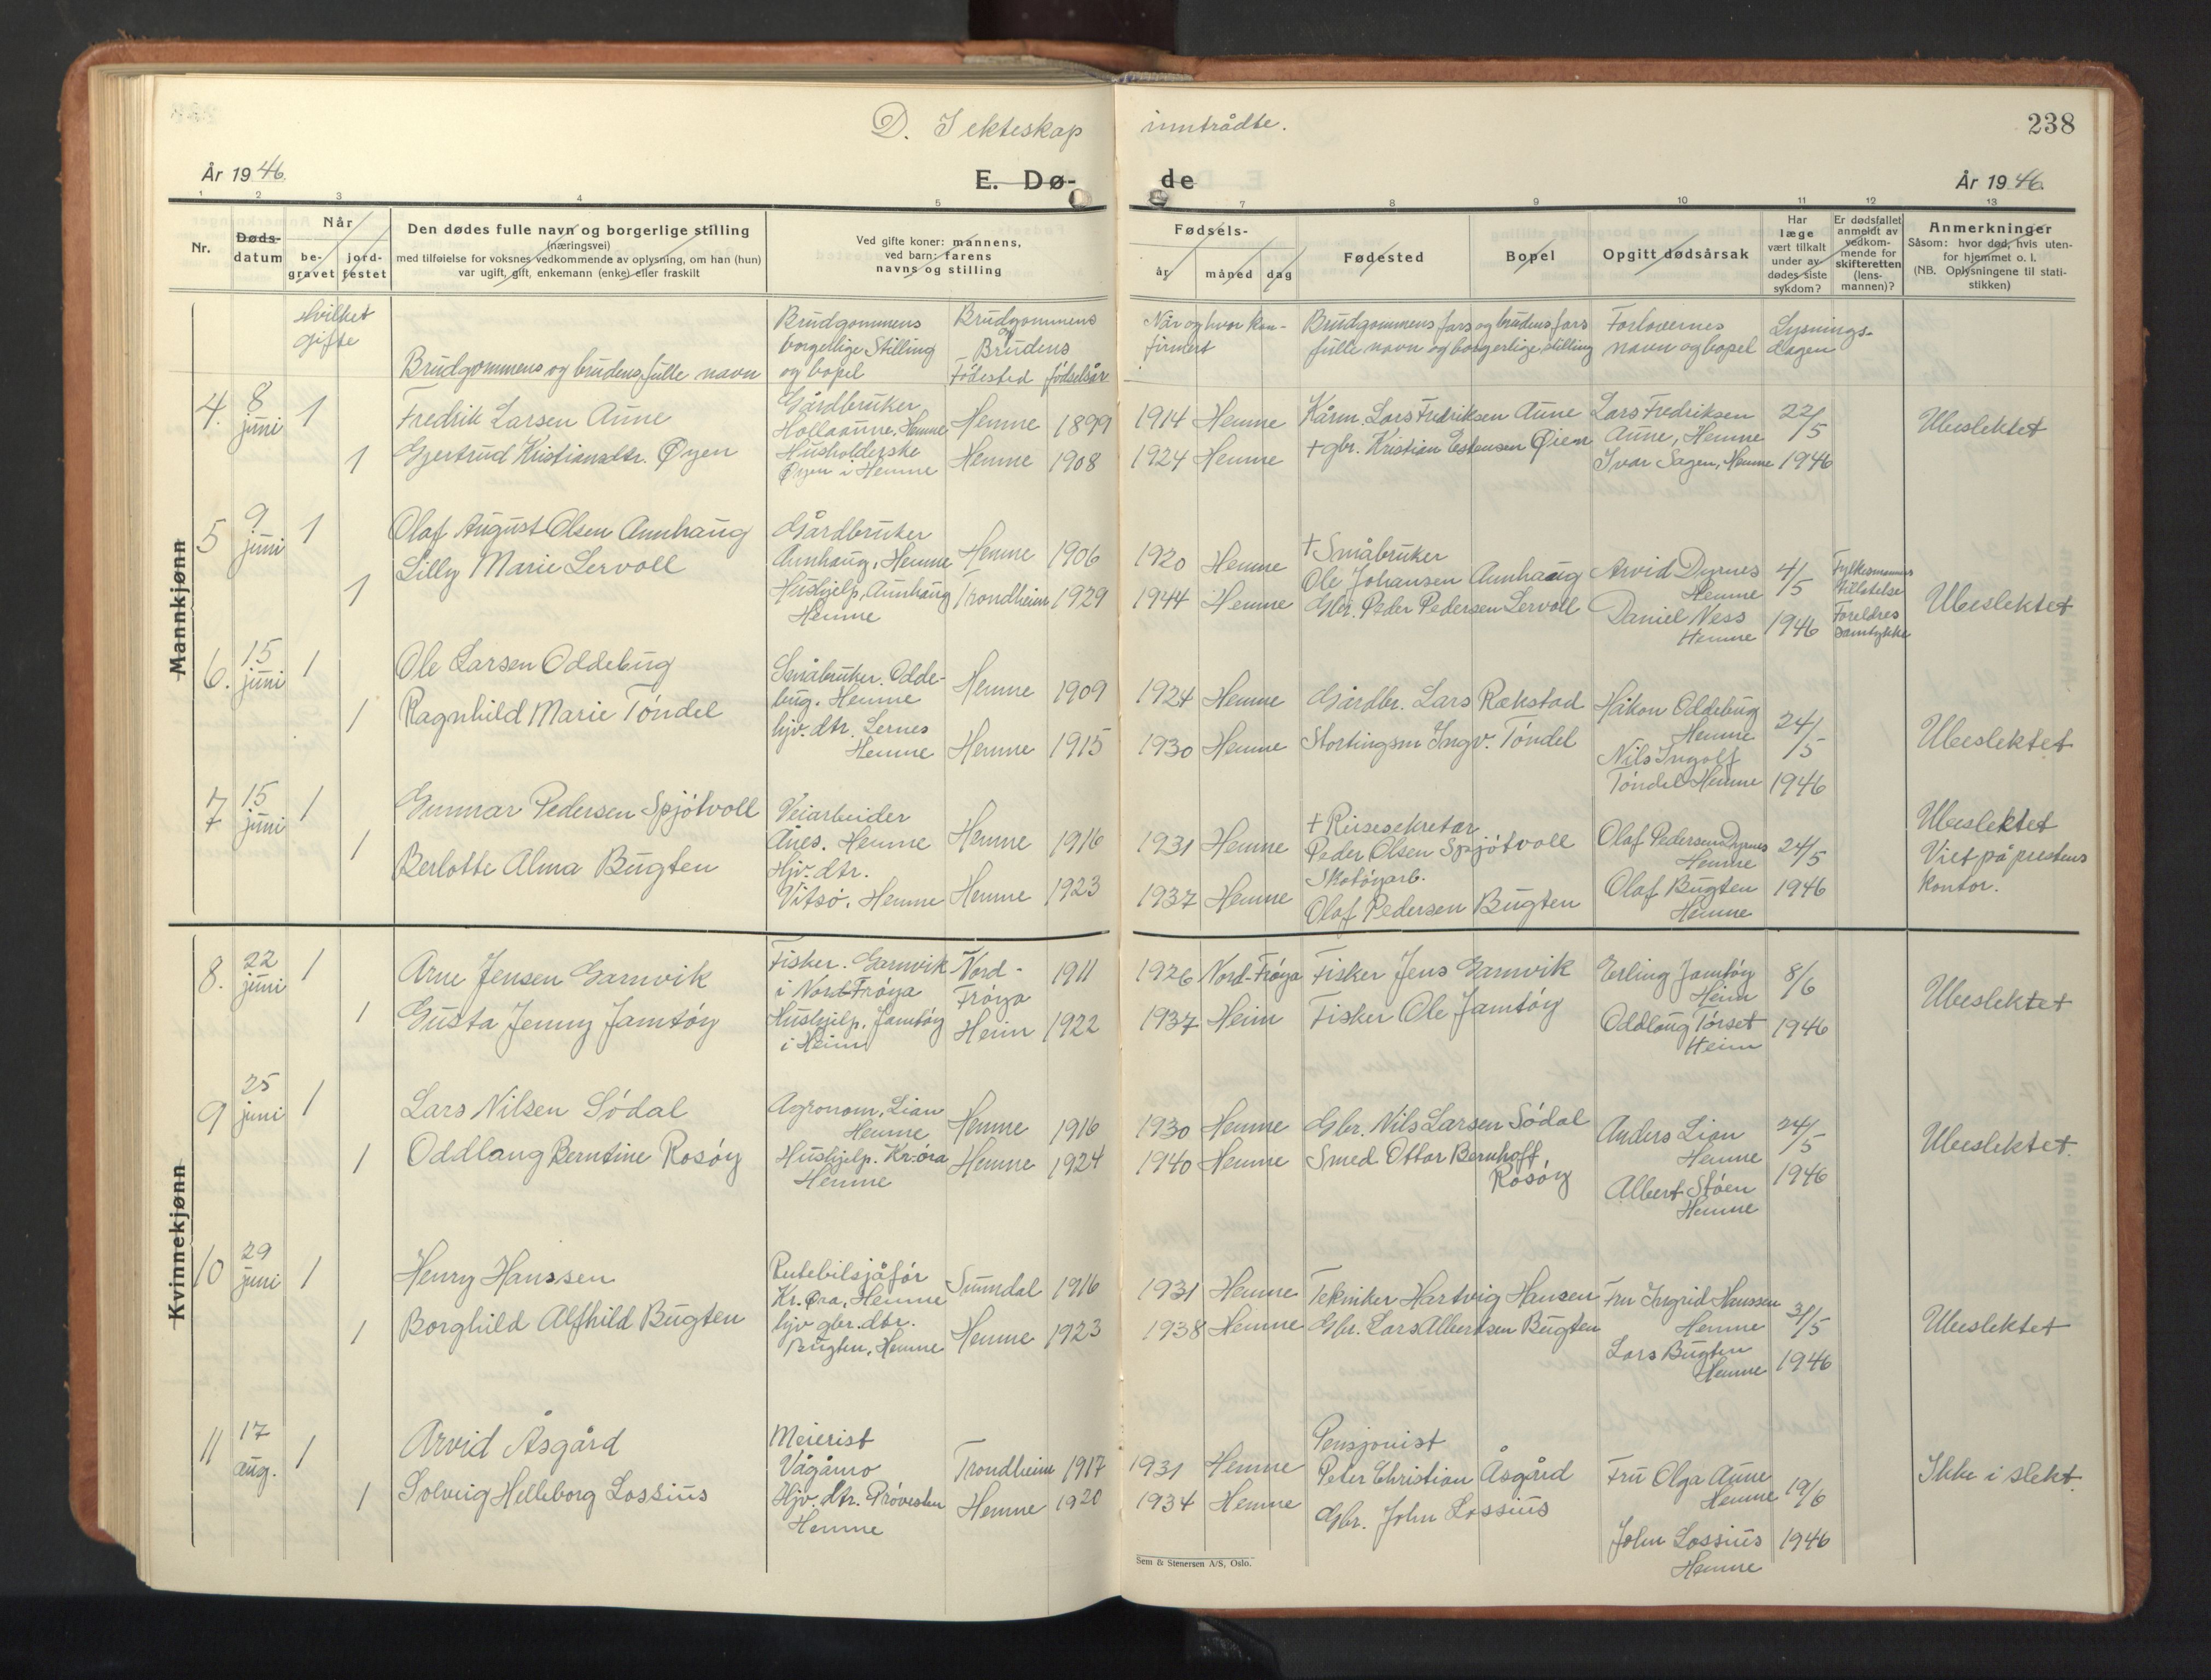 D. I ekteskap inntrådte.
238
År 1946.
E. Dø-de
År 1946.
1 2 3 4 5 7 8 9 10 11 12 13
Nr.
Døds-datum
Når
be-gravet
jord-festet
Den dødes fulle navn og borgerlige stilling
(næringsvei)
med tilføielse for voksnes vedkommende av oplysning, om han (hun)
var ugift, gift, enkemann (enke) eller fraskilt
Ved gifte koner: mannens,
ved barn: farens
navns og stilling
Fødsels-
år
måned
dag
Fødested
Bopel
Opgitt dødsårsak
Har
læge
vært tilkalt
under av
dødes siste
sykdom?
Er dødsfallet
anmeldt av
vedkom-
mende for
skifteretten
(lens-
mannen)?
Anmerkninger
Såsom: hvor død, hvis uten-
for hjemmet o. l.
(NB. Oplysningene til stati-
stikken)
Hvilket
gifte
Brudgommens og brudens fulle navn
Brudgommens
borgerlige Stilling
og bopel
Brudgommens
og
Brudens
Fødested fødselsår
Når og hvor kon-
firmert
Brudgommens fars og brudens fars
fulle navn og borgerlige stilling
Forlovernes
navn og bopel
Lysnings-
dagen
Mannkjønn
4. 8 juni 1
Fredrik Larsen Aune
Gårdbruker
Hollaaune, Hemne
Hemne 1899
1914 Hemne
Kårm. Lars Fredriksen Aune
Lars Fredriksen
Aune, Hemne
22/5
Ubeslektet
1 Gjertrud Kristiansdtr. Øyen
Husholderske
Øyen i Hemne
Hemne 1908
1924 Hemne
+gbr. Kristian Estensen Øien
Ivar Sagen, Hemne
1946
5 9 juni 1
Olaf August Olsen Aunhaug
Gårdbruker
Aunhaug, Hemne
Hemne 1906
1920 Hemne
+ Småbruker
Ole Johansen Aunhaug
Arvid Dyrnes
Hemne
4/5
Fylkesmannens
tillatelse
1 Lilly Marie Lervoll
Hushjelp, Aunhaug
Hemne
Trondheim 1929
1944 Hemne
Gbr. Peder Pedersen Lervoll
Daniel Ness
Hemne
1946
Foreldres
samtykke
Ubeslektet
6. 15 juni 1
Ole Larsen Oddebug
Småbruker. Odde-
bug. Hemne
Hemne 1909
1924 Hemne
Gårdbr. Lars Rekstad
Håkon Oddebug
Hemne
24/5
1 Ragnhild Marie Tøndel
hjv. dtr. Lernes
Hemne
Hemne 1915
1930 Hemne
Stortingsm Ingv. Tøndel
Nils Ingolf
Tøndel Hemne
1946
Ubeslektet
7 15 juni 1
Gunnar Pedersen Spjøtvoll
Veiarbeider
Anes. Hemne
Hemne 1916
1931 Hemne
+ Reisesekretær
Peder Olsen Spjøtvoll
Olaf Pedersen Dyrnes
Hemne
24/5
Ubeslektet
Viet på prestens
kontor.
1 Berlotte Alma Bugten
Hjv. dtr.
Vitsø. Hemne
Hemne 1923
1937 Hemne
Skotøyarb.
Olaf Pedersen Bugten
Olaf Bugten
Hemne
1946
Kvinnekjønn
8. 22 juni 1
Arne Jensen Garnvik
Fisker. Garnvik
i Nord-Frøya
Nord-
Frøya
1911
1926 Nord-Frøya
Fisker Jens Garnvik
Erling Jamtøy
Heim
8/6
1 Gusta Jenny Jamtøy
Hushjelp. Jamtøy
i Heim
Heim 1922
1937 Heim
Fisker Ole Jamtøy
Oddlaug Tørset
Heim
1946
Ubeslektet
9 25 juni 1
Lars Nilsen Sødal
Agronom, Lian
Hemne
Hemne 1916
1930 Hemne
Gbr. Nils Larsen Sødal
Anders Lian
Hemne
24/5
1 Oddlaug Berntine Rosøy
Hushjelp. Kr-øra
Hemne
Hemne 1924
1940 Hemne
Smed Ottar Bernhoff
Rosøy
Albert Støen
Hemne
1946
Ubeslektet.
10 29 juni 1
Henry Hanssen
Rutebilsjåfør
Kr. Øra, Hemne
Sunndal 1916
1931 Hemne
Tekniker Hartvig Hansen
Fru Ingrid Hanssen
Hemne
31/5
1 Borghild Alfhild Bugten
hjv gbr. dtr.
Bugten, Hemne
Hemne 1923
1938 Hemne
Gbr. Lars Albertsen Bugten
Lars Bugten
Hemne
1946
Ubeslektet
11 17 aug. 1
Arvid Åsgård
Meierist
Vågåmo
Trondheim 1917
1931 Hemne
Pensjonist
Peter Christian Åsgård
Fru Olga Aune
Hemne
19/6
Ikke i slekt.
1 Solveig Helleborg Lossius
Hjv. dtr. Prøvesten
Hemne
Hemne 1920
1934 Hemne
Gbr. John Lossius
John Lossius
Hemne
1946
Sem & Stenersen A/S, Oslo.